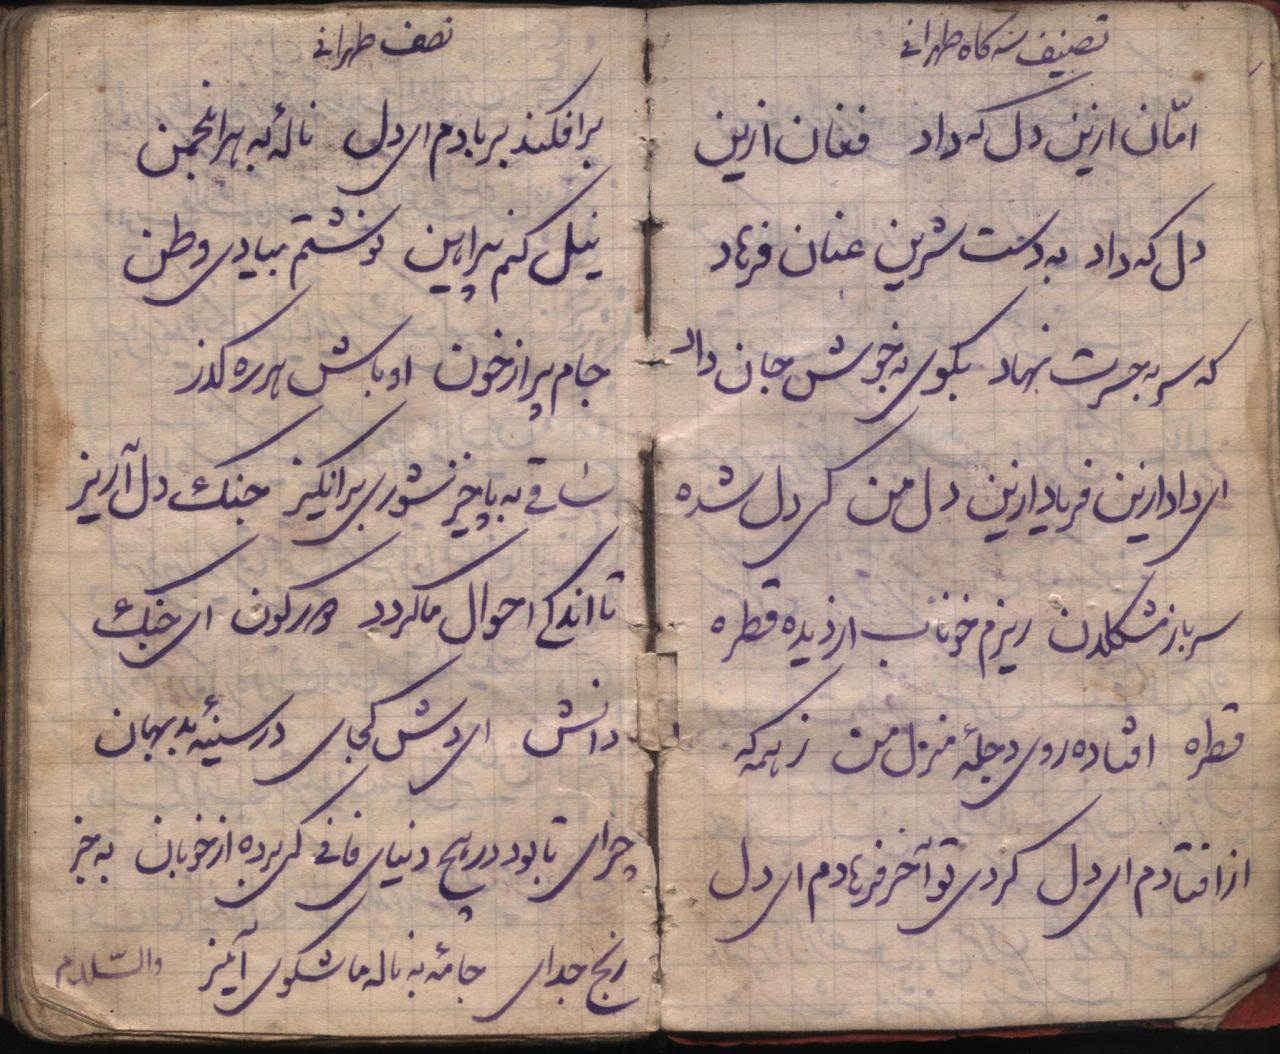 تصنیف سه کاه طهرانی
امّان ازین دل که داد فغان ازین
دل که داد به دست شرین عنان فرهاد
که سر به حسرت نهاد بکوی به خوشس جان داد
ای داد ازین فریاد ازین دل من کی دل شده
سر باز مشکلدن ریزم خوناب از دیده قطره
قطره افتاده روی دجلهٔ منزل من زهمکه
از افتادم ای دل کردی تو آخر فرهادم ای دل
نصف طهرانی
برافکند بر بادم ای دل نالهٔ به هر انجمن
نیلی کنم پیراهین نوشتم بیادی وطن
جام پر از خون اوباش هر ره کذر
ساقی به پاخیز شوری برانکیز جنک دل آریز
تا اندکی احوال ما کردد کون ای خبک
دانش ای دش کجای در سینهٔ بد بهان
چرای تابود در هیچ دنیای فانی کی برده از خوبان به جز
رنج جدای جامهٔ به ناله ما شکوی آمیز والسّلام